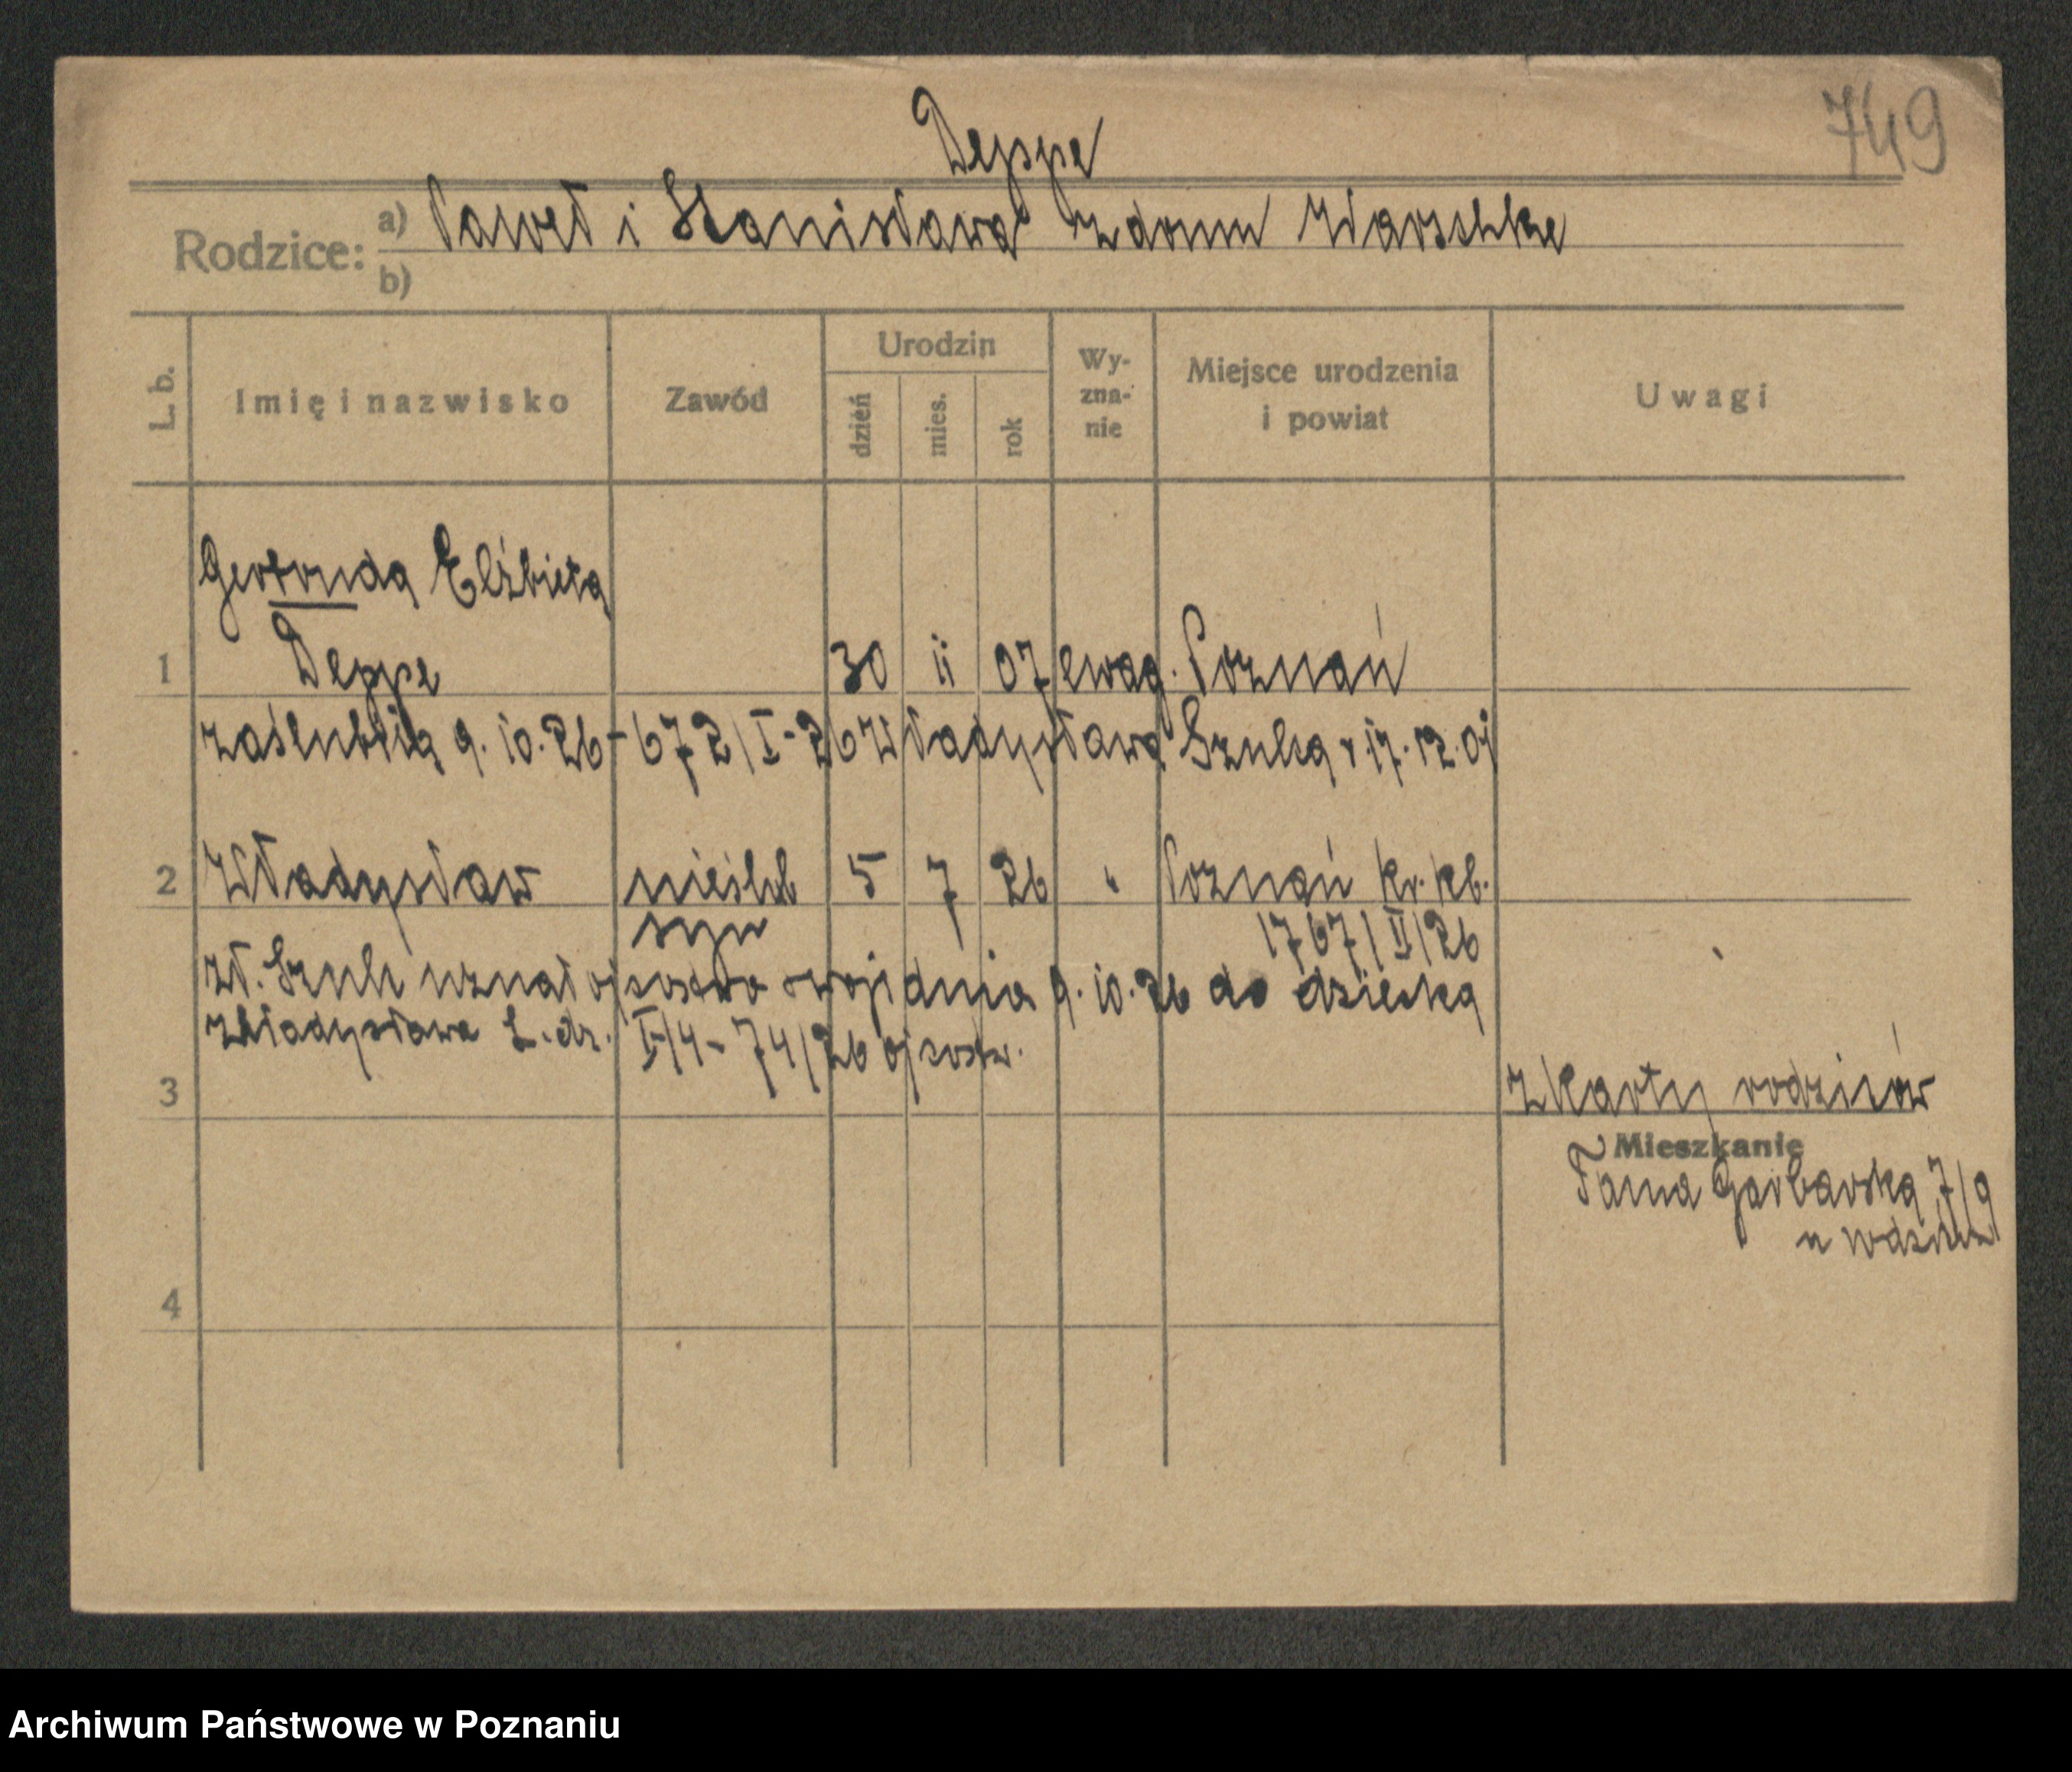 749
Deppe
Rodzice: a) Paweł i Stanisława z domu Warschke
b)
L. b. Imię i nazwisko Zawód Urodzin dzień mies. rok Wy-zna-nie Miejsce urodzenia i powiat Uwagi
Gertruda Elżbieta
1 Deppe 30 11 07 ewag. Poznań
zaślubiła 9.10.26 - 672/I-26 Władysława Szulca 17.12.01
2 Władysław nieślub 5 7 26 " Poznań kr. kb.
syn 1767/II/26
Wł. Szulc uznał ojcostwo swoje dnia 9.10.26 do dziecka
Władysława L. dz. I/4-74/26 ojcostw.
3 z karty rodziców
Mieszkanie
Tama Garbarska 7/9
4
Archiwum Państwowe w Poznaniu